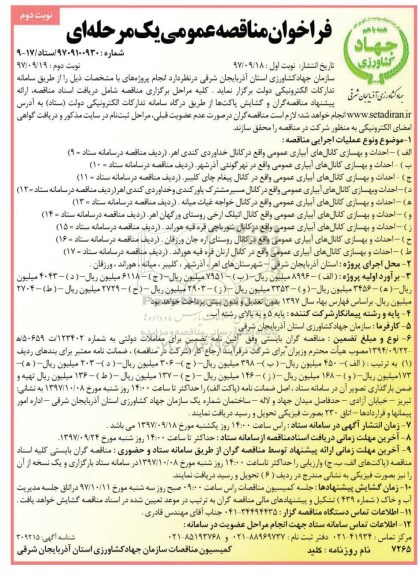 نوبت دوم
فراخوان مناقصه عمومی یک مرحله‌ای
همه با هم
جهاد
کشاورزی
جهاد کشاورزی آذربایجان شرقی
شماره : ۹۷۰۹۱۰۰۹۳۰/ستاد/۱۷-۹
تاریخ انتشار: نوبت اول : ۹۷/۰۹/۱۸ نوبت دوم : ۹۷/۰۹/۱۹
سازمان جهادکشاورزی استان آذربایجان شرقی درنظردارد انجام پروژه‌های با مشخصات ذیل را از طریق سامانه
تدارکات الکترونیکی دولت برگزار نماید . کلیه مراحل برگزاری مناقصه شامل دریافت اسناد مناقصه، ارائه
پیشنهاد مناقصه‌گران و گشایش پاکت‌ها از طریق درگاه سامانه تدارکات الکترونیکی دولت (ستاد) به آدرس
www.setadiran.ir انجام خواهد شد؛ لازم است مناقصه‌گران درصورت عدم عضویت قبلی، مراحل ثبت‌نام در سایت مذکور و دریافت گواهی
امضای الکترونیکی به منظور شرکت در مناقصه را محقق سازند.
۱-موضوع ونوع عملیات اجرایی مناقصه :
الف – احداث و بهسازی کانال‌های آبیاری عمومی واقع در کانال خداوردی کندی اهر. (ردیف مناقصه درسامانه ستاد = ۹)
ب – احداث و بهسازی کانال‌های آبیاری عمومی واقع در نهر گونئی آذرشهر. (ردیف مناقصه درسامانه ستاد = ۱۰)
ج – احداث و بهسازی کانال‌های آبیاری عمومی واقع در کانال پیغام چای کلیبر. (ردیف مناقصه درسامانه ستاد = ۱۱)
د – احداث وبهسازی کانال‌های آبیاری عمومی واقع در کانال مسیرمشترک یاور کندی وخداوردی کندی اهر(ردیف مناقصه درسامانه ستاد = ۱۲)
ه – احداث و بهسازی کانال‌های آبیاری عمومی واقع در کانال خواجه غیاث میانه . (ردیف مناقصه درسامانه ستاد = ۱۳)
و – احداث و بهسازی کانال‌های آبیاری عمومی واقع کانال ائیلک ارخی روستای ورگهان اهر. (ردیف مناقصه درسامانه ستاد = ۱۴)
ز – احداث و بهسازی کانال‌های آبیاری عمومی واقع درکانال شورباجی قره قیه هوراند . (ردیف مناقصه درسامانه ستاد = ۱۵)
ح – احداث و بهسازی کانال‌های آبیاری عمومی واقع درکانال روستای اره جان ورزقان . (ردیف مناقصه درسامانه ستاد = ۱۶)
ط – احداث و بهسازی کانال‌های آبیاری عمومی واقع در کانال ارنان قره قیه هوراند. (ردیف مناقصه درسامانه ستاد = ۱۷)
۲- محل اجرای پروژه : استان آذربایجان شرقی – شهرستان‌های اهر ، آذرشهر ، کلیبر ، میانه ، هوراند ، ورزقان .
۳- برآورد اولیه پروژه : (الف) – ۸۹۹۶ میلیون ریال–(ب) – ۷۹۵۱ میلیون ریال–(ج) – ۶۱۱۸ میلیون ریال–(د) – ۴۰۴۳ میلیون
ریال–(ه) – ۳۴۵۶ میلیون ریال–(و) – ۳۳۵۳ میلیون ریال–(ز) – ۲۹۰۳ میلیون ریال–(ح) – ۲۷۲۹ میلیون ریال–(ط) – ۲۷۰۴
میلیون ریال. براساس فهارس بهاء سال ۱۳۹۷ بدون تعدیل و بدون پیش پرداخت خواهد بود
۴- پایه و رشته پیمانکار شرکت کننده : پایه ۵ و به بالای رشته آب.
۵- کارفرما : سازمان جهادکشاورزی استان آذربایجان شرقی.
۶- نوع و مبلغ تضمین : مناقصه گران بایستی وفق آئین نامه تضمین برای معاملات دولتی به شماره ۱۲۳۴۰۲/ت ۵۰۶۵۹ه
۱۳۹۴/۰۹/۲۲ مصوب هیأت محترم وزیران برای شرکت درفرآیند ارجاع کار (شرکت در مناقصه) ، ضمانت نامه معتبر برای بندهای ردیف
(۱) به ترتیب : (الف) – ۴۵۰ میلیون ریال–(ب) – ۳۹۸ میلیون ریال–(ج) – ۳۰۶ میلیون ریال – (د) – ۲۰۳ میلیون ریال–(ه) –
۱۷۳ میلیون ریال–(و) – ۱۶۸ میلیون ریال – (ز) – ۱۴۶ میلیون ریال – (ح) – ۱۳۷ میلیون ریال – (ط) – ۱۳۶ میلیون ریال تهیه و
ضمن بارگذاری تصویر آن در سامانه ستاد ، اصل ضمانت نامه (پاکت الف) را حداکثر تا ساعت ۱۴:۰۰ روز شنبه مورخ ۱۳۹۷/۱۰/۰۸ به نشانی
تبریز – خیابان آزادی – حدفاصل میدان جهاد و لاله – ساختمان شماره یک سازمان جهاد کشاورزی استان آذربایجان شرقی – اداره امور
پیمانها و قراردادها – اتاق ۲۳۰ بصورت فیزیکی تحویل و رسید دریافت نمایند.
۷- زمان انتشار آگهی در سامانه ستاد : راس ساعت ۱۴:۰۰ روز یکشنبه مورخ ۱۳۹۷/۰۹/۱۸ می باشد .
۸- آخرین مهلت زمانی دریافت اسنادمناقصه ازسامانه ستاد : حداکثر تا ساعت ۱۴:۰۰ روز شنبه مورخ ۱۳۹۷/۰۹/۲۴
۹- آخرین مهلت زمانی ارائه پیشنهاد توسط مناقصه گران از طریق سامانه ستاد و حضوری : مناقصه گران بایستی کلیه اسناد
مناقصه (پاکت‌های الف، ب، ج) وارزیابی را حداکثر تا ساعت ۱۴:۰۰ روز شنبه مورخ ۱۳۹۷/۱۰/۰۸ در سامانه ستاد بارگزاری و یک نسخه از آن
را نیز بصورت فیزیکی به نشانی مندرج در ردیف (۶) تحویل و رسید دریافت نمایند.
۱۰- زمان گشایش پیشنهادها : جلسه کمیسیون مناقصات راس ساعت ۰۹:۰۰ صبح روز سه شنبه مورخ ۹۷/۱۰/۱۱ دراتاق جلسه مدیریت
آب و خاک (شماره ۴۳۹) تشکیل و پیشنهادهای مالی مناقصه گران به ترتیب در موعد تعیین شده در اسناد مناقصه گشایش خواهد یافت .
۱۱- اطلاعات تماس دستگاه مناقصه گزار : ۳۴۴۹۴۴۳۵-۰۴۱ جناب آقای مهندس قادری .
۱۲- اطلاعات تماس سامانه ستاد جهت انجام مراحل عضویت در سامانه :
مرکز تماس : ۴۱۹۳۴-۰۲۱ دفتر ثبت نام : ۸۸۹۶۹۷۳۷-۰۲۱ و ۸۵۱۹۳۷۶۸-۰۲۱ شناسه آگهی: ۳۰۹۲۱۵
۷۲۶۵ نام روزنامه : کلید کمیسیون مناقصات سازمان جهادکشاورزی استان آذربایجان شرقی